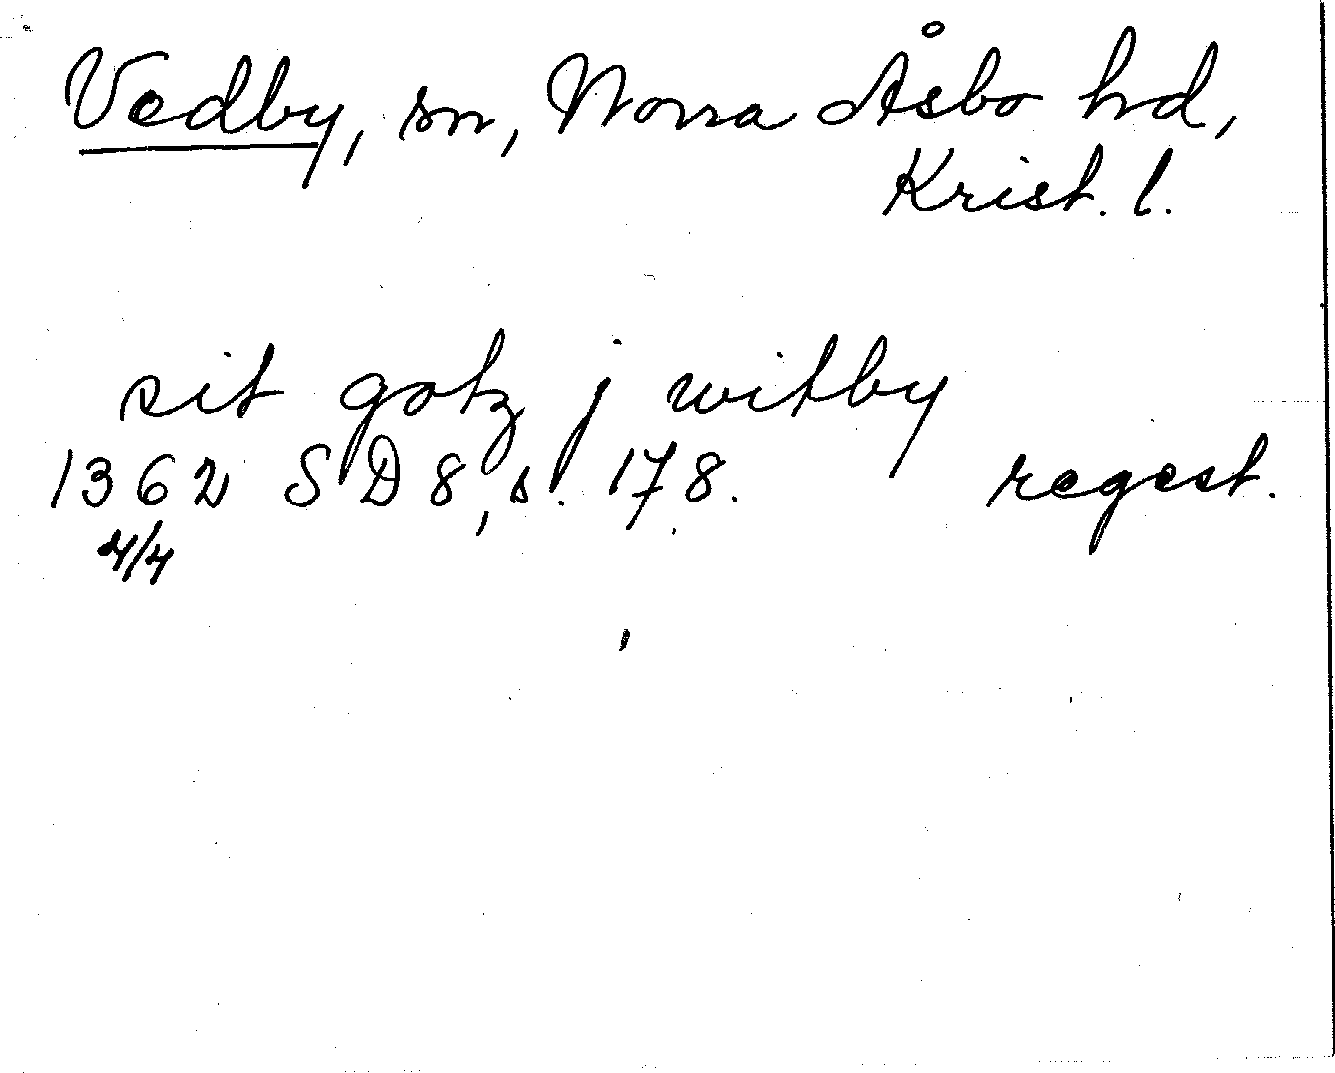 Vedby, sn, Norra Åsbo hd,
Krist. l.
sit gotz j witby
1362 SD 8, s. 178. regest.
4/4